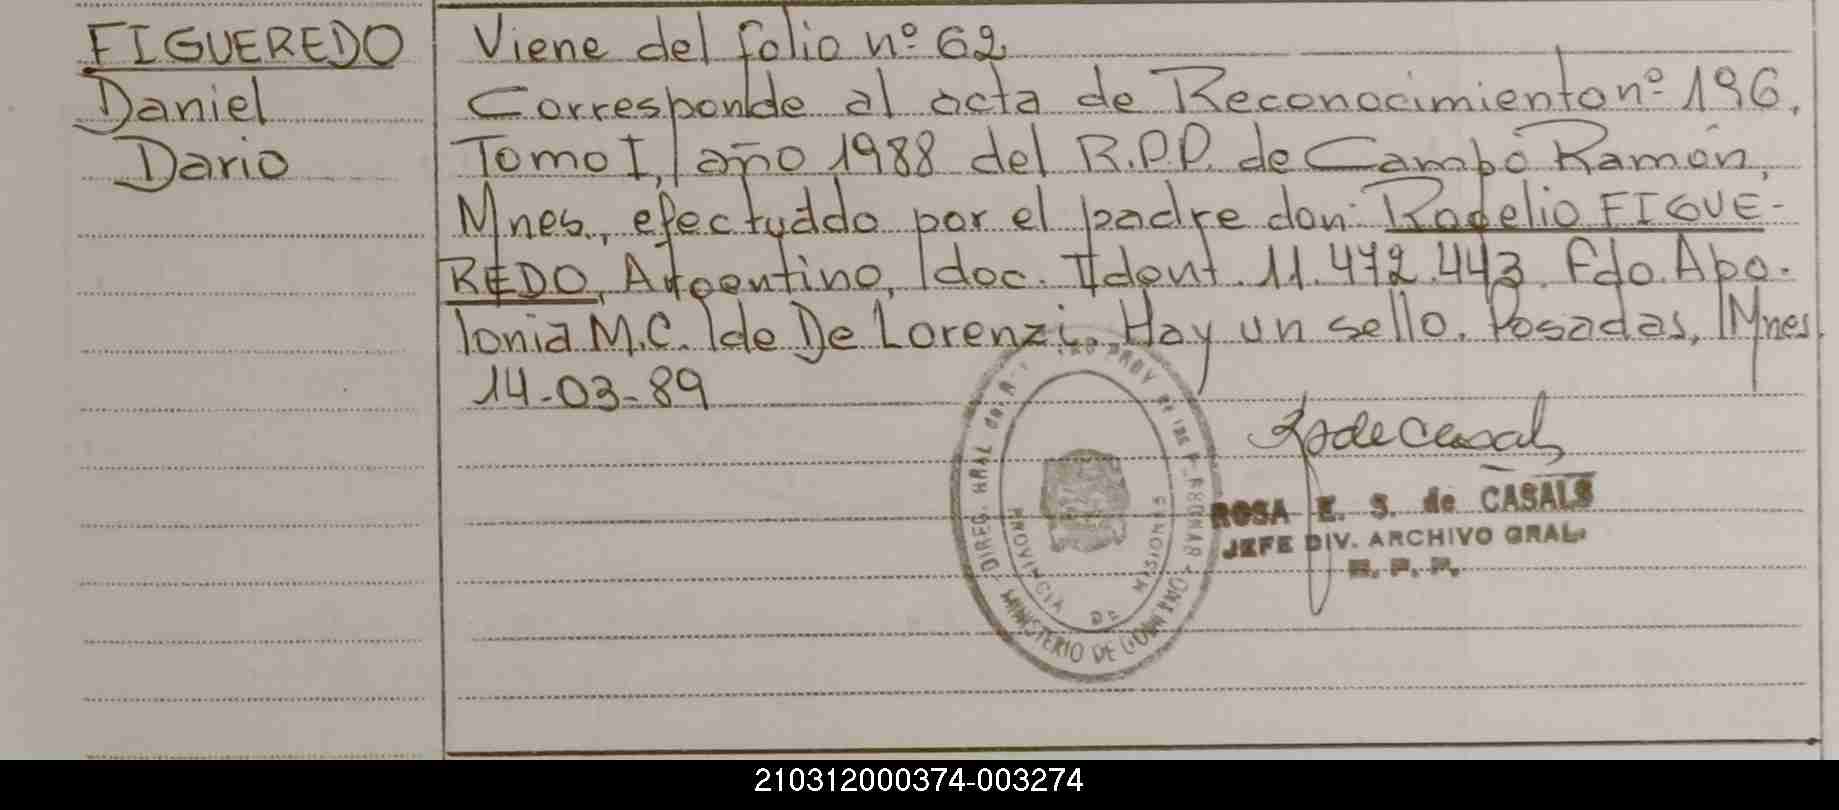 FIGUEREDO
Daniel
Dario
Viene del folio nº 62
Corresponde al acta de Reconocimiento nº 196,
Tomo I, año 1988 del R.P.P. de Campo Ramón,
Mnes., efectuado por el padre don: Rogelio FIGUE-
REDO, Argentino, doc. Ident. 11.472.443. Fdo. Apo-
lonia M.C. de De Lorenzi. Hay un sello. Posadas, Mnes.
14-03-89
DIREG. GRAL
PROVINCIA DE MISIONES
MINISTERIO DE GOBIERNO
ROSA E. S. de CASALS
JEFE DIV. ARCHIVO GRAL.
R. P. P.
210312000374-003274